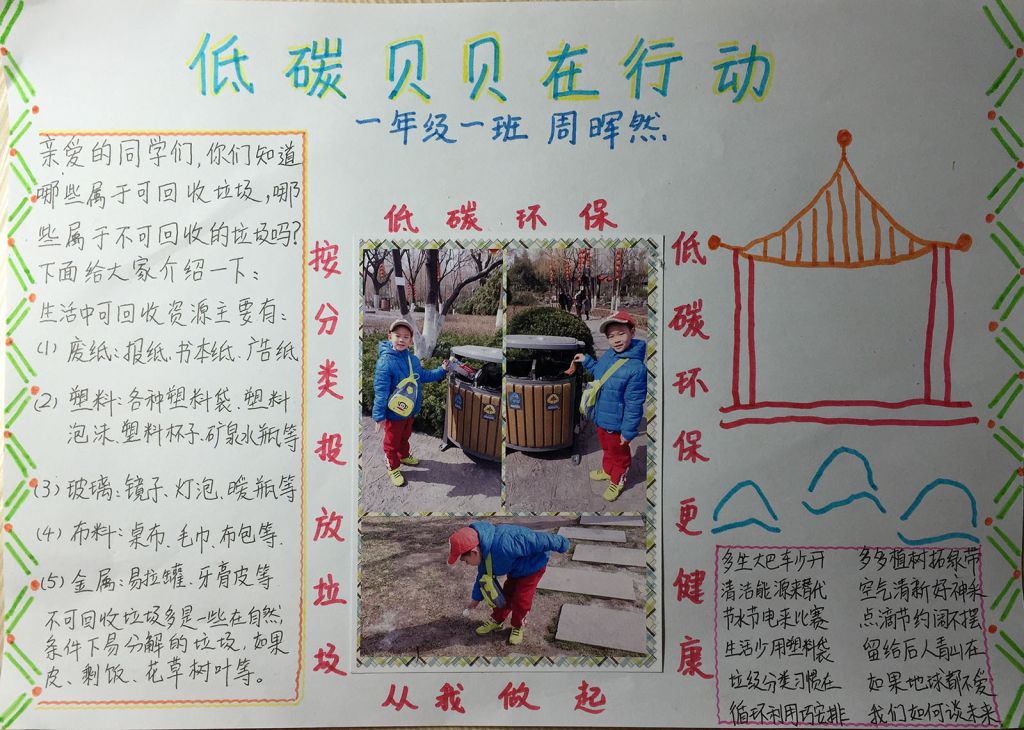 低碳贝贝在行动
一年级一班 周晖然
亲爱的同学们,你们知道
哪些属于可回收垃圾,哪
些属于不可回收的垃圾吗?
下面给大家介绍一下:
生活中可回收资源主要有:
(1) 废纸:报纸、书本纸、广告纸
(2) 塑料:各种塑料袋、塑料
泡沫、塑料杯子、矿泉水瓶等
(3) 玻璃:镜子、灯泡、暖瓶等
(4) 布料:桌布、毛巾、布包等.
(5) 金属:易拉罐、牙膏皮等
不可回收垃圾多是一些在自然
条件下易分解的垃圾,如果
皮、剩饭、花草树叶等。
按分类投放垃圾
低碳环保
从我做起
低碳环保更健康
多生大巴车少开
清洁能源来替代
节水节电来比赛
生活少用塑料袋
垃圾分类习惯在
循环利用巧安排
多多植树拓绿带
空气清新好神采
点滴节约阔不摆
留给后人青山在
如果地球都不爱
我们如何谈未来